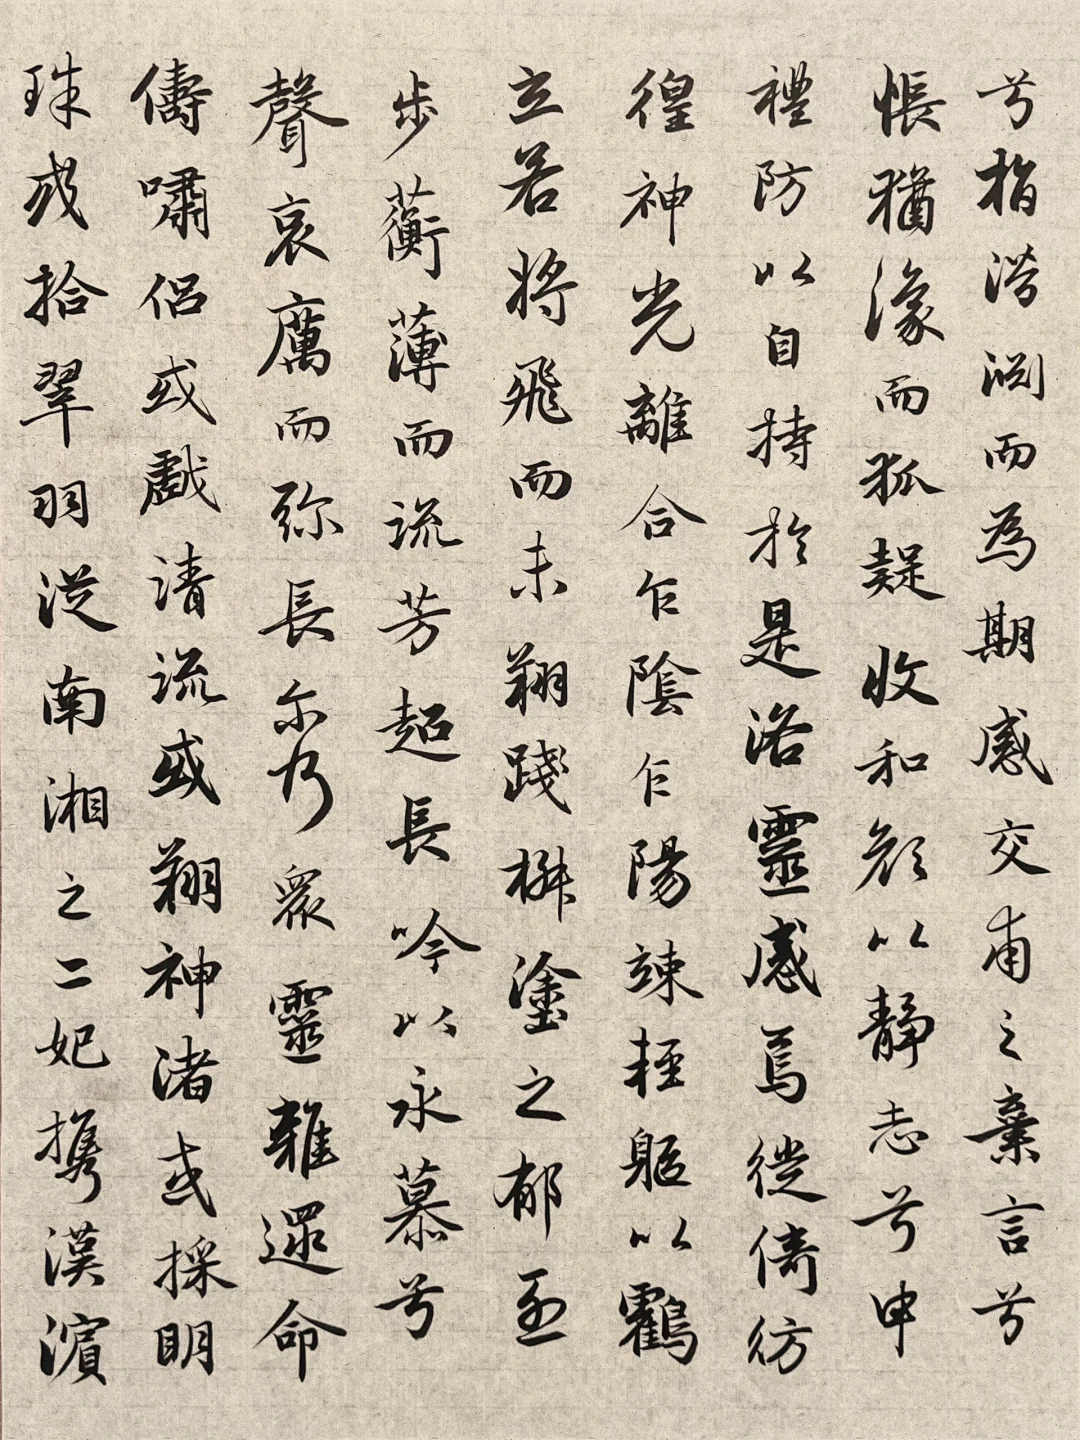 兮指潛淵而為期感交甫之棄言兮
悵猶豫而狐疑收和顏以靜志兮申
禮防以自持於是洛靈感焉徙倚彷
徨神光離合乍陰乍陽竦輕軀以鶴
立若將飛而未翔踐椒塗之郁烈
步蘅薄而流芳超長吟以永慕兮
聲哀厲而彌長爾乃眾靈雜遝命
儔嘯侶或戲清流或翔神渚或採明
珠或拾翠羽從南湘之二妃攜漢濱